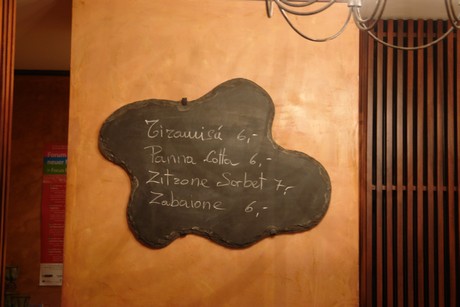 Tiramisú 6,-
Panna Cotta 6,-
Zitrone Sorbet 7,-
Zabaione 6,-